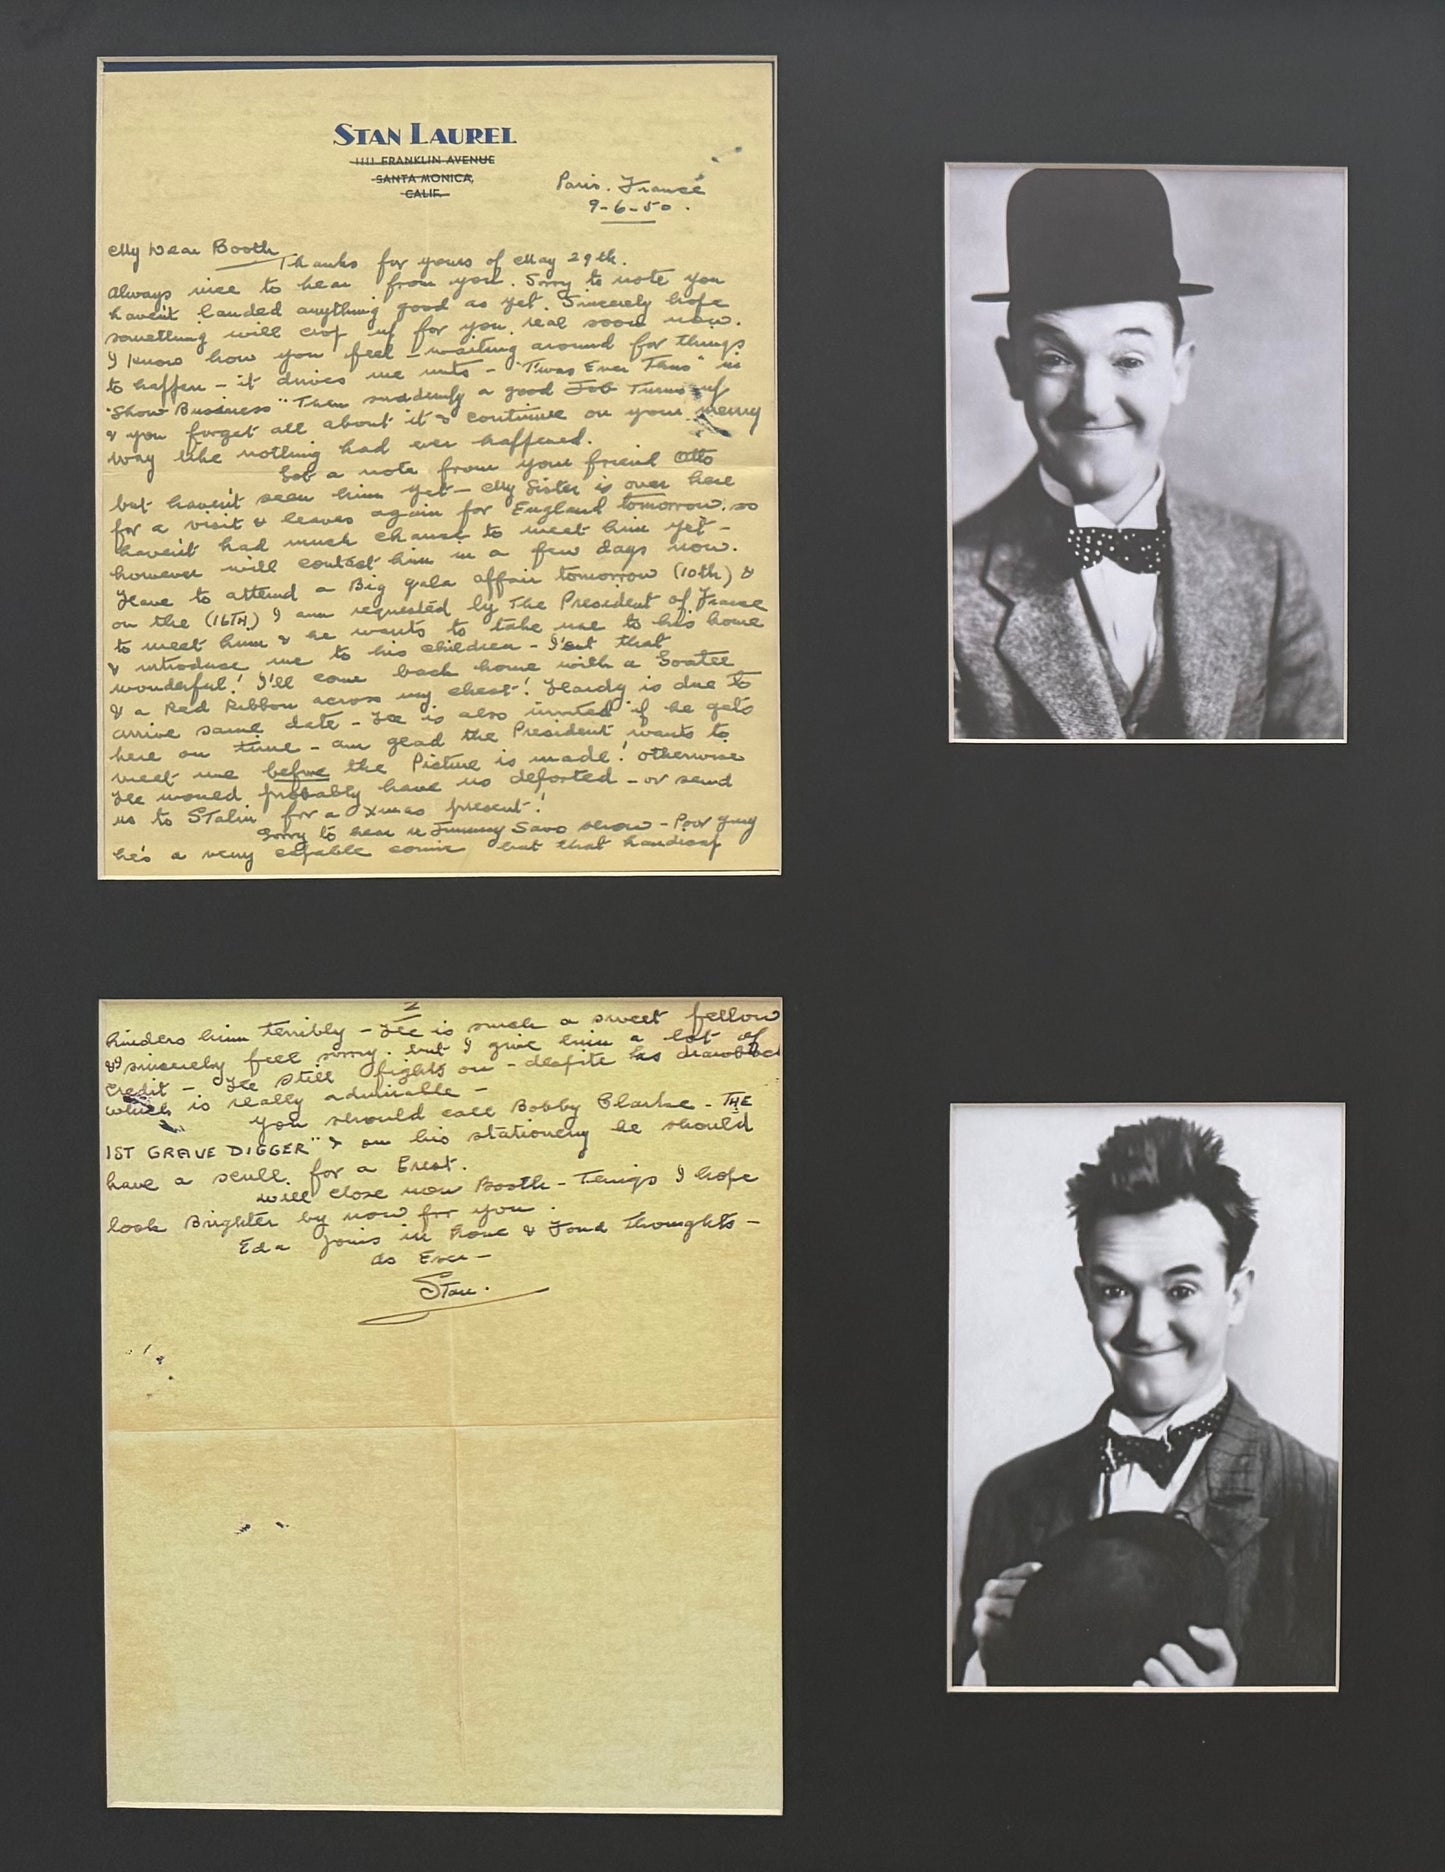 STAN LAUREL
1111 FRANKLIN AVENUE
SANTA MONICA,
CALIF.
Paris. France
9-6-50.
My Dear Booth
Thanks for yours of May 29th.
always nice to hear from you. Sorry to note you
haven't landed anything good as yet. Sincerely hope
something will crop up for you real soon now.
I know how you feel - waiting around for things
to happen - it drives me nuts - "Twas Ever Thus" in
"Show Business" Then suddenly a good Job Turns up
& you forget all about it & continue on your merry
way like nothing had ever happened.
Got a note from your friend Otto
but haven't seen him yet - My Sister is over here
for a visit & leaves again for England tomorrow. so
haven't had much chance to meet him yet -
however will contact him in a few days now.
Have to attend a Big gala affair tomorrow (10th) &
on the (16TH) I am requested by The President of France
to meet him & he wants to take me to his home
& introduce me to his children - Isn't that
wonderful! I'll come back home with a Goatee
& a Red Ribbon across my chest! Hardy is due to
arrive same date - He is also invited if he gets
here on time - am glad the President wants to
meet me before the Picture is made! otherwise
He would probably have us deported - or send
us to Stalin for a Xmas present!
Sorry to hear re Jimmy Savo show - Poor guy
he's a very capable comic but that handicap
2
hinders him terribly - He is such a sweet fellow
& I sincerely feel sorry. but I give him a lot of
credit - He still fights on - despite his drawback
which is really admirable -
You should call Bobby Clarke - THE
1ST GRAVE DIGGER" & on his stationery he should
have a scull. for a Crest.
will close now Booth - Things I hope
look Brighter by now for you.
Eda joins in love & Fond thoughts -
as Ever -
Stan.